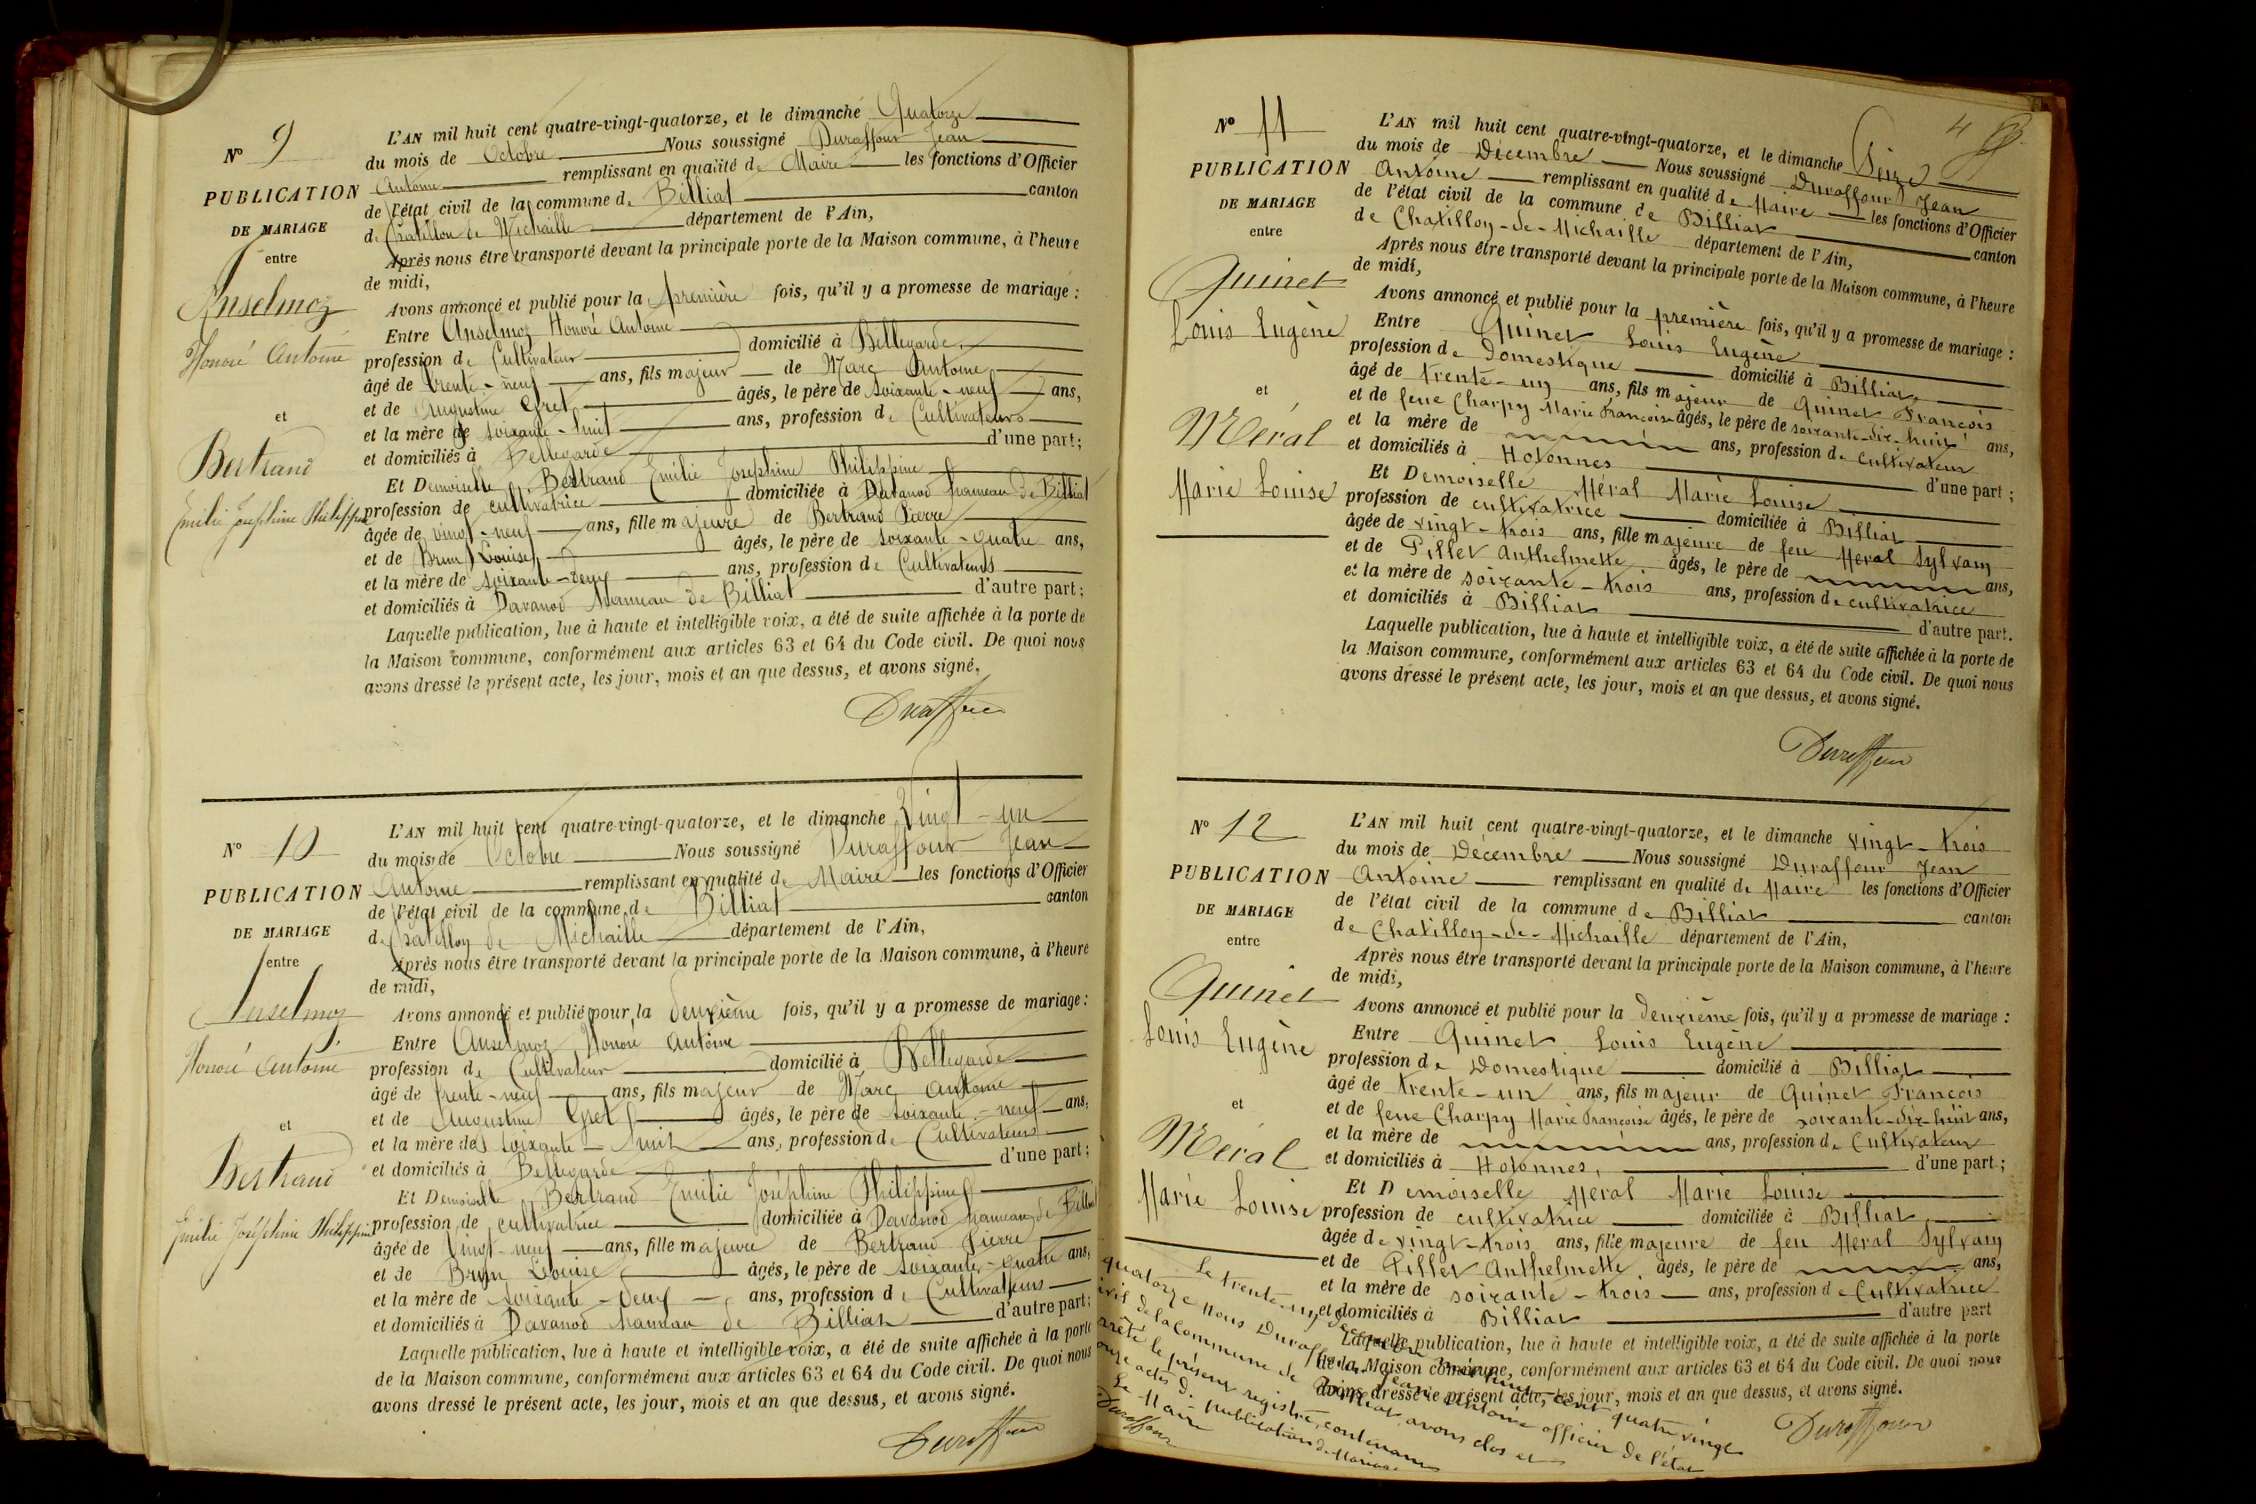 N° 9
PUBLICATION
DE MARIAGE
entre
Anselmoz
Honoré Antoine
et
Bertrand
Emilie Joséphine Philippine
L'AN mil huit cent quatre-vingt-quatorze, et le dimanche Quatorze
du mois de Octobre Nous soussigné Duraffour Jean
Antoine remplissant en qualité de Maire les fonctions d'Officier
de l'état civil de la commune de Billiat canton
de Chatillon de Michaille département de l'Ain,
Après nous être transporté devant la principale porte de la Maison commune, à l'heure
de midi,
Avons annoncé et publié pour la première fois, qu'il y a promesse de mariage :
Entre Anselmoz Honoré Antoine
profession de Cultivateur domicilié à Bellegarde
âgé de trente-neuf ans, fils majeur de Marc Antoine
et de Augustine Gret âgés, le père de soixante-neuf ans,
et la mère de soixante-huit ans, profession de Cultivateurs
et domiciliés à Bellegarde d'une part ;
Et Demoiselle Bertrand Emilie Josephine Philippine
profession de cultivatrice domiciliée à Davanod hameau de Billiat
âgée de vingt-neuf ans, fille majeure de Bertrand Pierre
et de Brun Louise âgés, le père de soixante-quatre ans,
et la mère de soixante-deux ans, profession de Cultivateurs
et domiciliés à Davanod hameau de Billiat d'autre part ;
Laquelle publication, lue à haute et intelligible voix, a été de suite affichée à la porte de
la Maison commune, conformément aux articles 63 et 64 du Code civil. De quoi nous
avons dressé le présent acte, les jour, mois et an que dessus, et avons signé.
Duraffour
N° 10
PUBLICATION
DE MARIAGE
entre
Anselmoz
Honoré Antoine
et
Bertrand
Emilie Joséphine Philippine
L'AN mil huit cent quatre-vingt-quatorze, et le dimanche Vingt-un
du mois de Octobre Nous soussigné Duraffour Jean
Antoine remplissant en qualité de Maire les fonctions d'Officier
de l'état civil de la commune de Billiat canton
de Chatillon de Michaille département de l'Ain,
Après nous être transporté devant la principale porte de la Maison commune, à l'heure
de midi,
Avons annoncé et publié pour la deuxième fois, qu'il y a promesse de mariage :
Entre Anselmoz Honoré Antoine
profession de Cultivateur domicilié à Bellegarde
âgé de trente-neuf ans, fils majeur de Marc Antoine
et de Augustine Gret âgés, le père de soixante-neuf ans,
et la mère de soixante-huit ans, profession de Cultivateurs
et domiciliés à Bellegarde d'une part ;
Et Demoiselle Bertrand Emilie Joséphine Philippine
profession de cultivatrice domiciliée à Davanod hameau de Billiat
âgée de Vingt-neuf ans, fille majeure de Bertrand Pierre
et de Brun Louise âgés, le père de soixante-quatre ans,
et la mère de soixante-deux ans, profession de Cultivateurs
et domiciliés à Davanod hameau de Billiat d'autre part ;
Laquelle publication, lue à haute et intelligible voix, a été de suite affichée à la porte
de la Maison commune, conformément aux articles 63 et 64 du Code civil. De quoi nous
avons dressé le présent acte, les jour, mois et an que dessus, et avons signé.
Duraffour
4
N° 11
PUBLICATION
DE MARIAGE
entre
Quinet
Louis Eugène
et
Méral
Marie Louise
L'AN mil huit cent quatre-vingt-quatorze, et le dimanche Seize
du mois de Décembre Nous soussigné Duraffour Jean
Antoine remplissant en qualité de Maire les fonctions d'Officier
de l'état civil de la commune de Billiat canton
de Chatillon-de-Michaille département de l'Ain,
Après nous être transporté devant la principale porte de la Maison commune, à l'heure
de midi,
Avons annoncé et publié pour la première fois, qu'il y a promesse de mariage :
Entre Quinet Louis Eugène
profession de domestique domicilié à Billiat
âgé de trente-un ans, fils majeur de Quinet François
et de feue Charpy Marie Françoise âgés, le père de soixante-dix-huit ans,
et la mère de ans, profession de cultivateur
et domiciliés à Hotonnes d'une part ;
Et Demoiselle Méral Marie Louise
profession de cultivatrice domiciliée à Billiat
âgée de vingt-trois ans, fille majeure de feu Meral Sylvain
et de Pillet Anthelmette âgés, le père de ans,
et la mère de soixante-trois ans, profession de cultivatrice
et domiciliés à Billiat d'autre part.
Laquelle publication, lue à haute et intelligible voix, a été de suite affichée à la porte de
la Maison commune, conformément aux articles 63 et 64 du Code civil. De quoi nous
avons dressé le présent acte, les jour, mois et an que dessus, et avons signé.
Duraffour
N° 12
PUBLICATION
DE MARIAGE
entre
Quinet
Louis Eugène
et
Méral
Marie Louise
L'AN mil huit cent quatre-vingt-quatorze, et le dimanche vingt-trois
du mois de Décembre Nous soussigné Duraffour Jean
Antoine remplissant en qualité de Maire les fonctions d'Officier
de l'état civil de la commune de Billiat canton
de Chatillon-de-Michaille département de l'Ain,
Après nous être transporté devant la principale porte de la Maison commune, à l'heure
de midi,
Avons annoncé et publié pour la deuxième fois, qu'il y a promesse de mariage :
Entre Quinet Louis Eugène
profession de Domestique domicilié à Billiat
âgé de trente-un ans, fils majeur de Quinet François
et de feue Charpy Marie Françoise âgés, le père de soixante-dix-huit ans,
et la mère de ans, profession de Cultivateur
et domiciliés à Hotonnes, d'une part ;
Et Demoiselle Méral Marie Louise
profession de cultivatrice domiciliée à Billiat
âgée de vingt-trois ans, fille majeure de feu Meral Sylvain
et de Pillet Anthelmette âgés, le père de ans,
et la mère de soixante-trois ans, profession de Cultivatrice
et domiciliés à Billiat d'autre part
Laquelle publication, lue à haute et intelligible voix, a été de suite affichée à la porte
de la Maison commune, conformément aux articles 63 et 64 du Code civil. De quoi nous
avons dressé le présent acte, les jour, mois et an que dessus, et avons signé.
Duraffour
Le trente-un décembre mil huit cent quatre vingt
quatorze Nous Duraffour Jean Antoine officier de l'état
civil de la commune de Billiat, avons clos et
arrêté le présent registre, contenant
douze actes de publications de Mariage
Le Maire
Duraffour